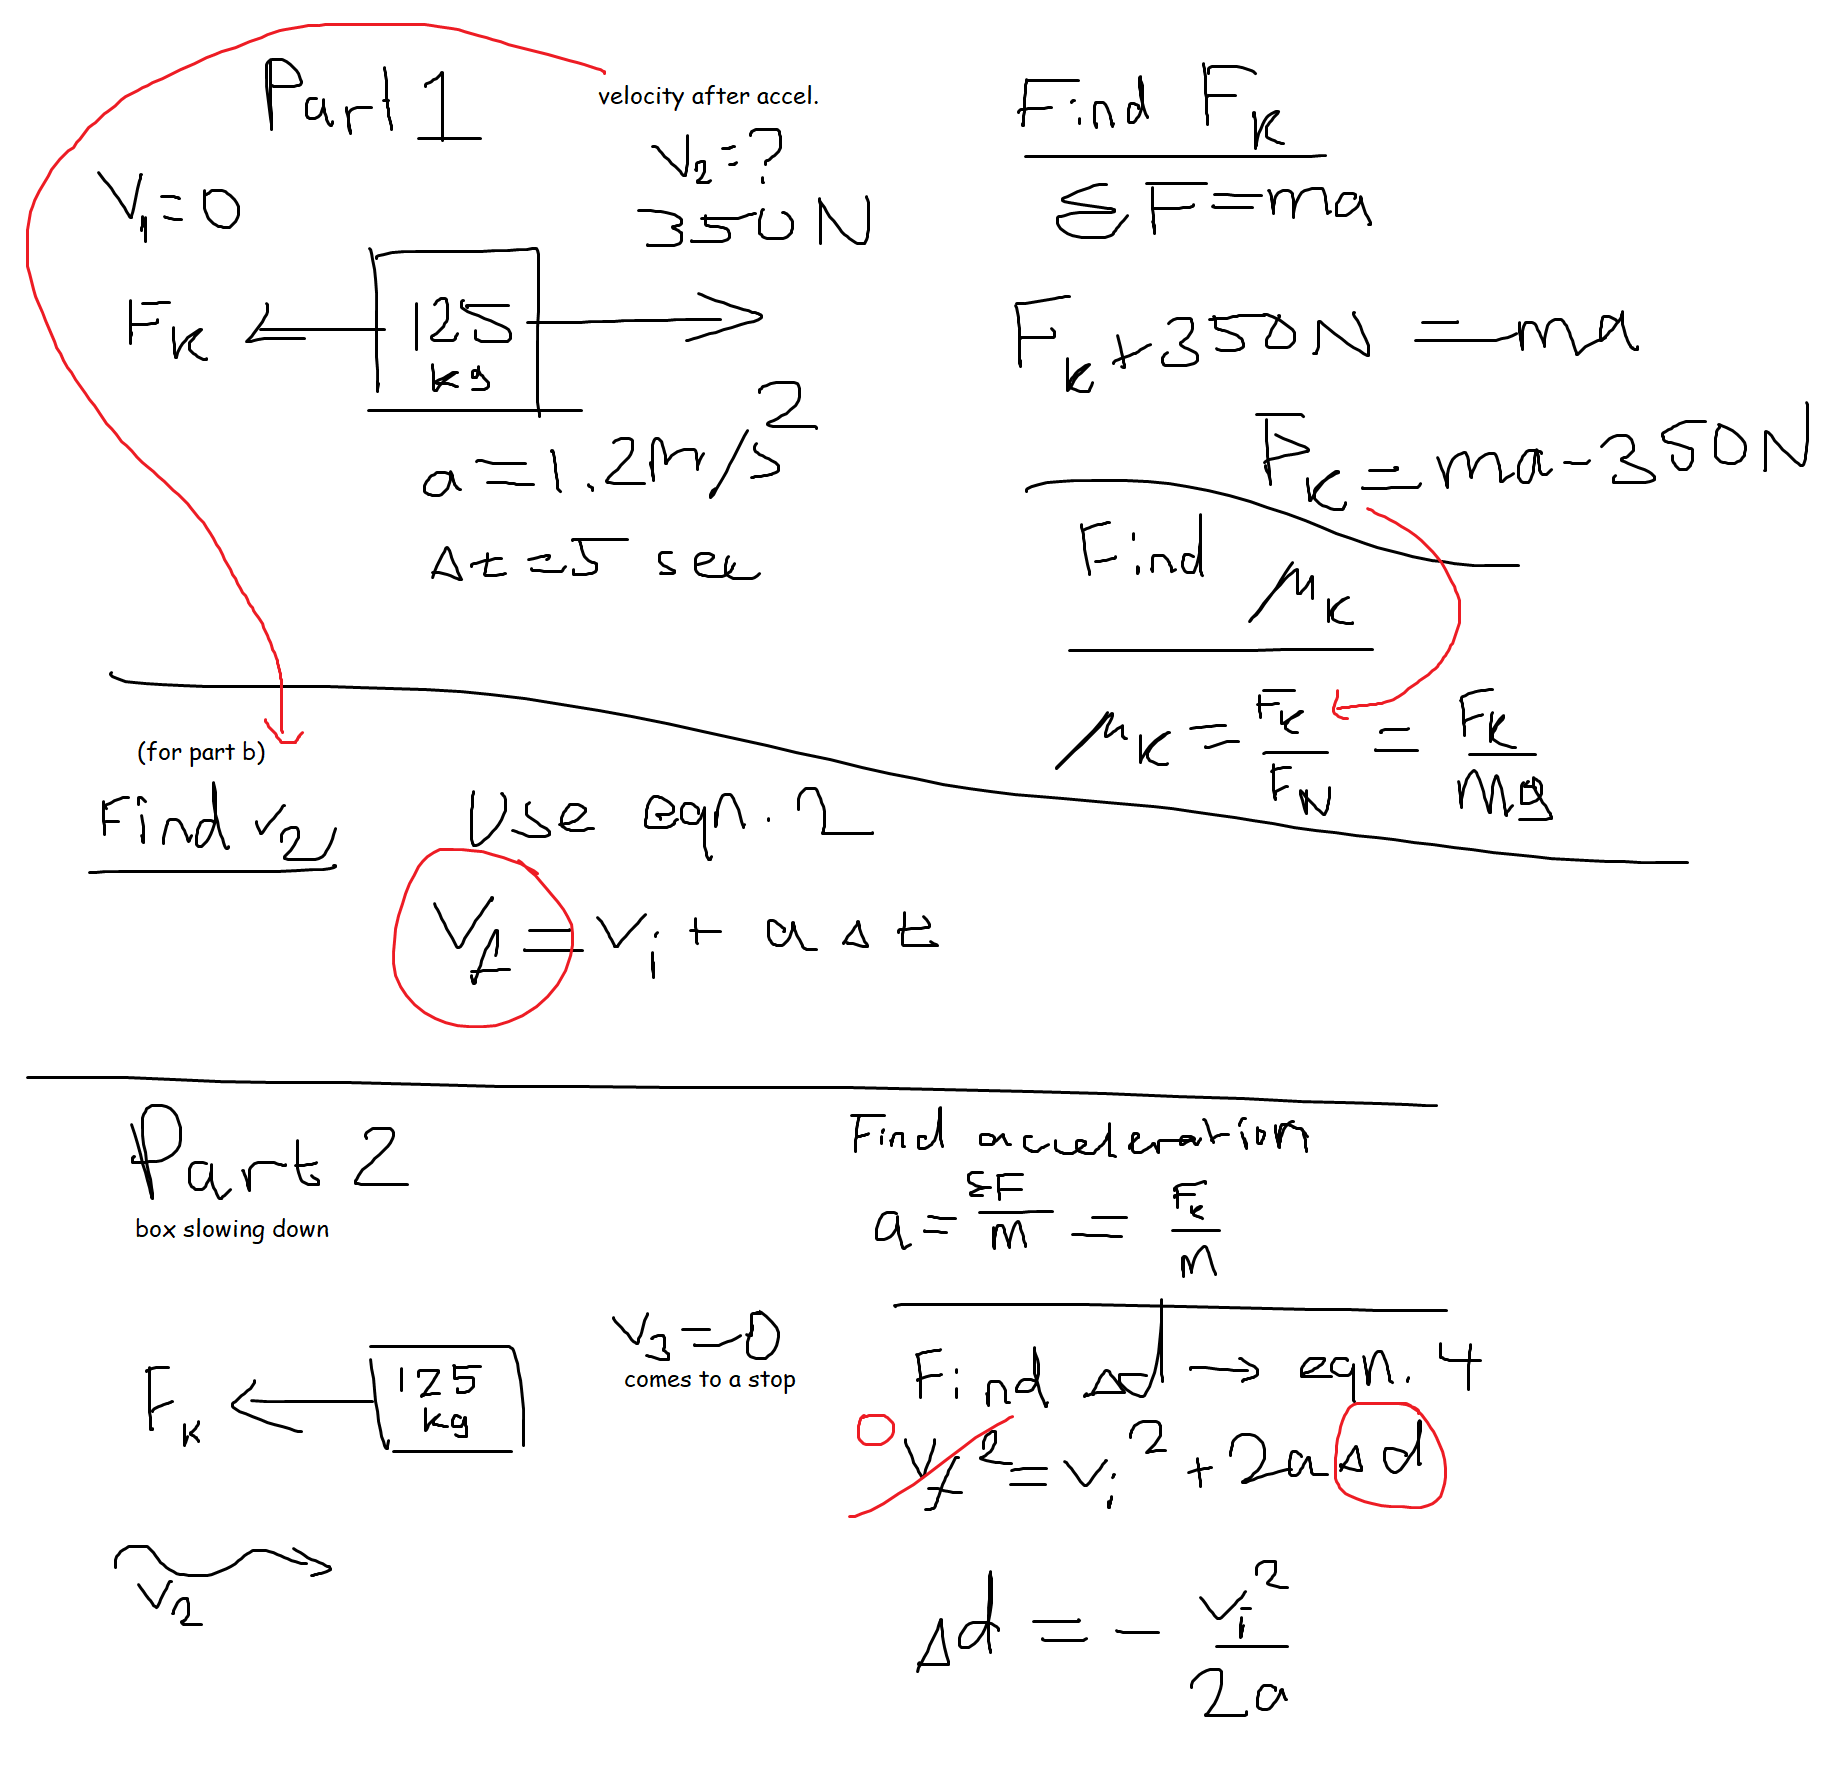 Part 1
velocity after accel.
V₂=?
V₁=0
350N
Fₖ
125
kg
a=1.2m/s²
Δt=5 sec
Find Fₖ
ΣF=ma
Fₖ+350N=ma
Fₖ=ma-350N
Find μₖ
μₖ=Fₖ/F_N=Fₖ/mg
(for part b)
Find v₂
Use eqn. 2
V_f=vᵢ+aΔt
Part 2
box slowing down
Fₖ
125
kg
v₃=0
comes to a stop
v₂
Find acceleration
a=ΣF/m=Fₖ/m
Find Δd→eqn. 4
0
V_f²=vᵢ²+2aΔd
Δd=-vᵢ²/2a